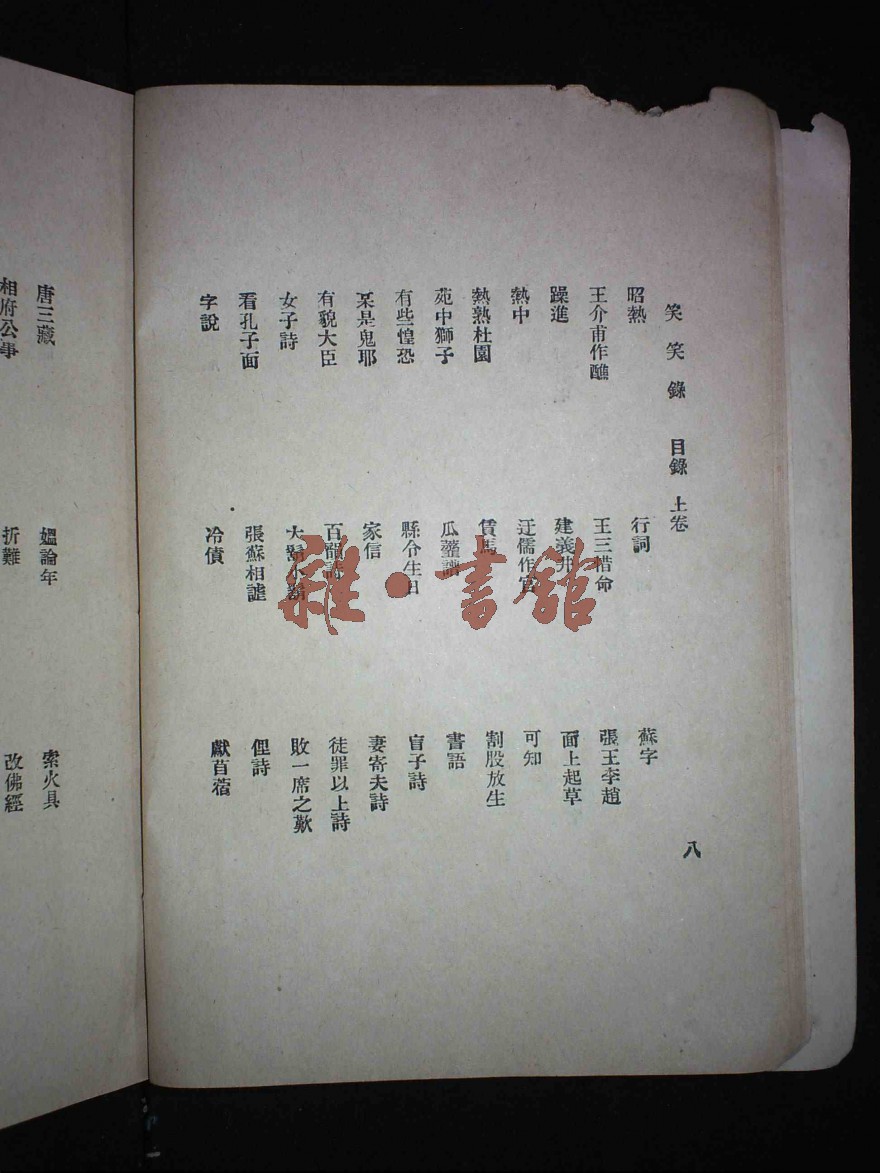 笑笑錄 目錄 上卷 八
昭熱 行詞 蘇字
王介甫作醮 王三惜命 張王李趙
躁進 建義井 面上起草
熱中 迂儒作官 可知
熱熟杜園 賃馬 割股放生
苑中獅子 瓜虀譜 書語
有些惶恐 縣令生日 盲子詩
某是鬼耶 家信 妻寄夫詩
有貌大臣 百韻詩 徒罪以上詩
女子詩 大鬍小鬍 敗一席之歎
看孔子面 張蘇相謔 俚詩
字說 冷債 獻苜蓿
唐三藏 媼論年 索火具
相府公事 折難 改佛經
雜·書館